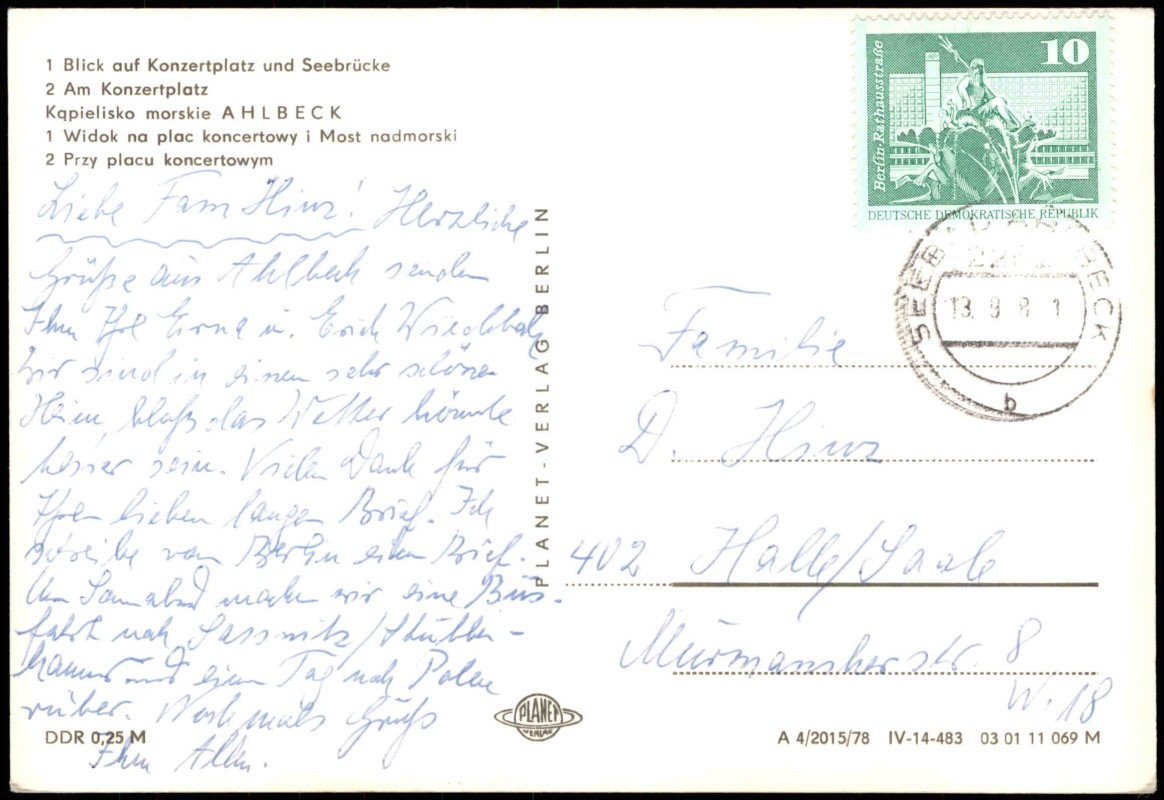 1 Blick auf Konzertplatz und Seebrücke
2 Am Konzertplatz
Kąpielisko morskie AHLBECK
1 Widok na plac koncertowy i Most nadmorski
2 Przy placu koncertowym
Liebe Fam Hinz! Herzliche
Grüße aus Ahlbeck senden
Ihnen Ihre Erna u. Erich
Wir sind in einem sehr schönen
Heim, bloß das Wetter könnte
besser sein. Vielen Dank für
Ihren lieben langen Brief. Ich
schreibe von Berlin einen Brief.
Am Sonnabend machen wir eine Bus-
fahrt nach Sassnitz/Stubben-
kammer und einen Tag nach Polen
rüber. Nochmals Gruß
Ihnen Allen.
DDR 0,25 M
PLANET-VERLAG BERLIN
PLANET
VERLAG
10
Berlin-Rathausstraße
DEUTSCHE DEMOKRATISCHE REPUBLIK
SEEBAD AHLBECK
13. 9 8 1
b
Familie
D. Hinz
402 Halle/Saale
Murmanskerstr. 8
W. 18
A 4/2015/78 IV-14-483 03 01 11 069 M